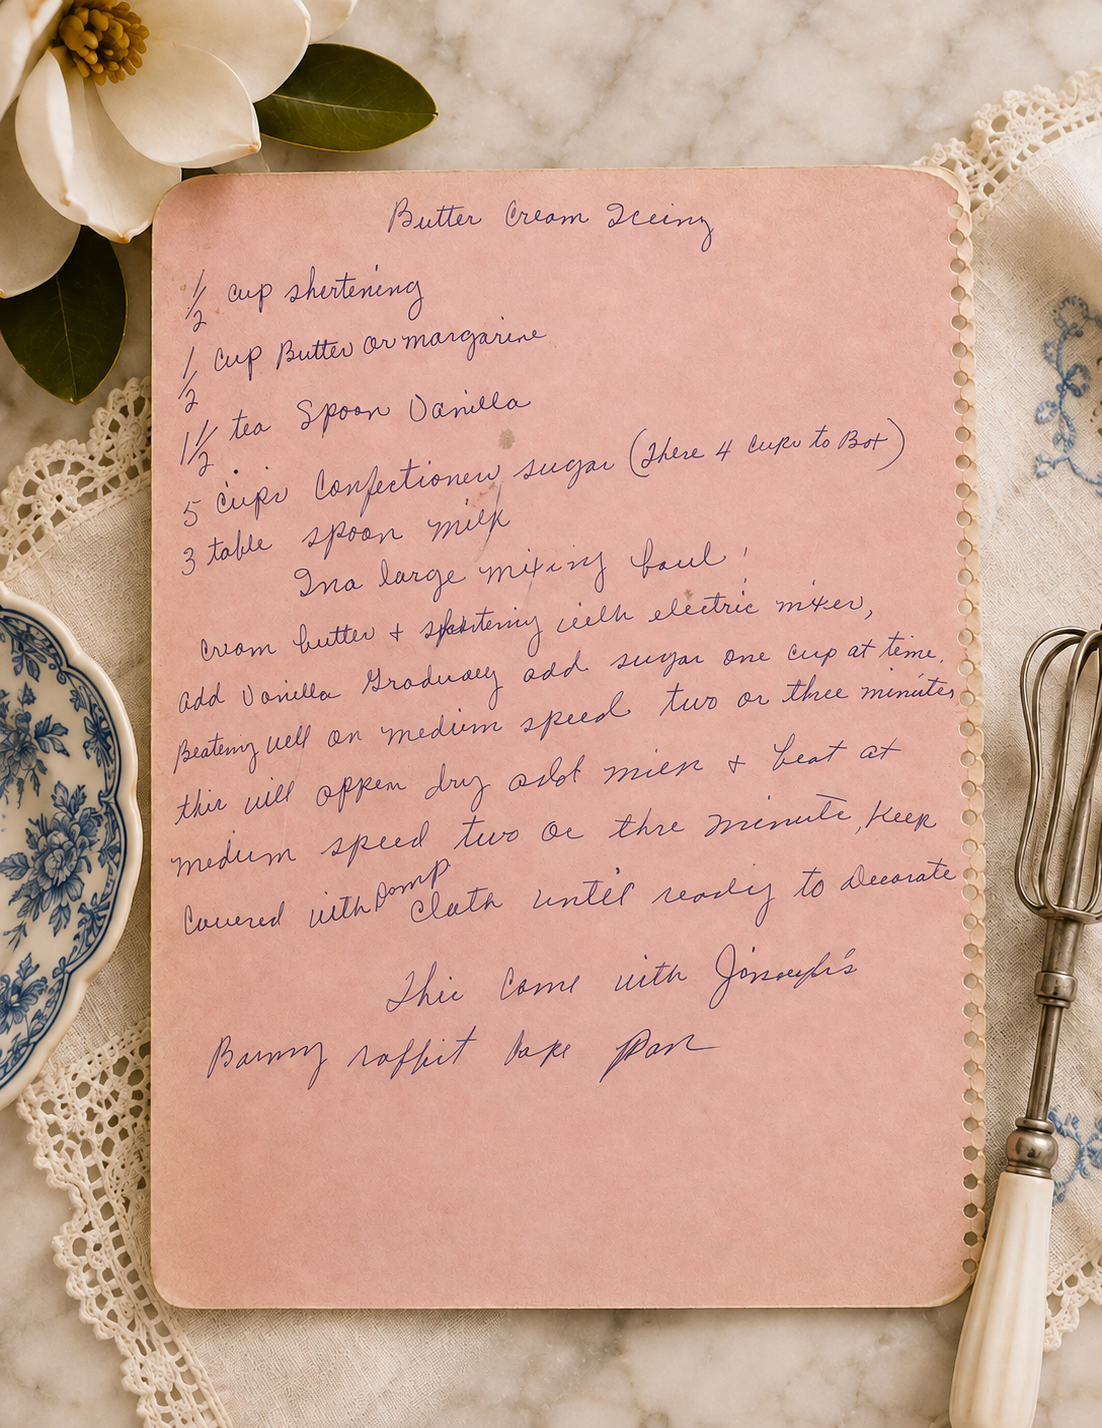 Butter Cream Iceing
1/2 cup shertening
1/2 cup Butter or margarine
1 1/2 tea Spoon Vanilla
5 cups Confectioners sugar (There 4 cups to Box)
3 table spoon milk
In a large mixing boul
cream butter + shertening with electric mixer,
add Vanilla Graduaey add sugar one cup at time.
Beating well on medium speed two or three minutes
this will appear dry add milk + beat at
medium speed two or thre minute, Keep
Covered with Damp cloth until ready to Decorate
This Come with
Bunny rabbit cake Pan